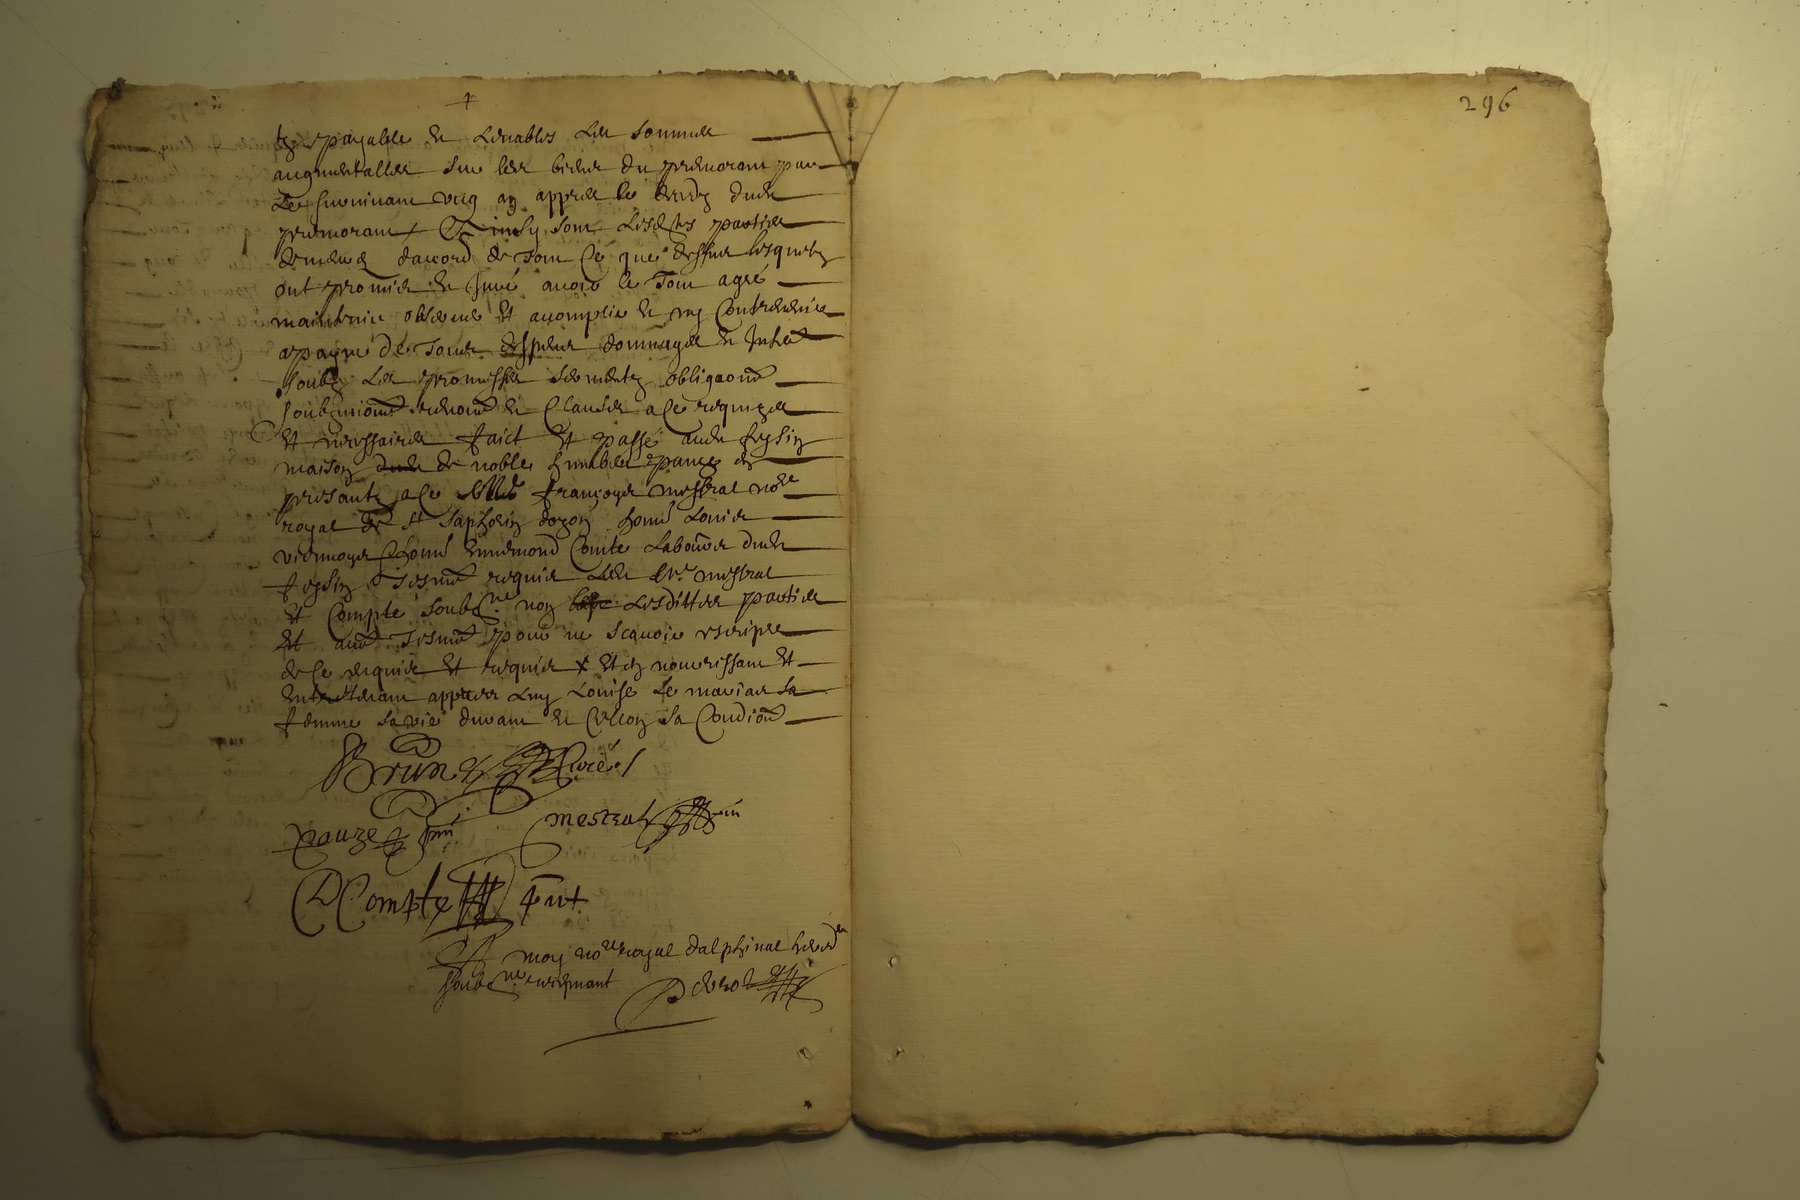 296
tz payable et Levables Les sommes
augmentalles sur les biens du premorant par
Le survivant ung an appres le decedz dud
premorant / Et insy sont Lesdtes parties
demeures daccord de tout Ce que dessus lesquelz
ont promis et Juré avoir le tout agré
maintenir observer Et acomplir et ny Contrevenir
a payne de tous despens dommages et Inhtz
soubz Les promesses sermentz obligaons
soubmions renons et Clauses a Ce requizes
Et necessaires faict Et passé aud feysin
maison de noble humbert pauze en
presantz a Ce françoys mestral nore
royal de St saphorin dozon homme Louis
viennoys homme ennemond Comte Laboureur dud
feysin Tesmoe requis Led Sr mestral
Et Compte soubzne non Lesdittes parties
Et aue Tesmoe pour ne scavoir escripre
de Ce enquis Et requis x Et en nourissant Et
Entretenant appres Luy Louise Le mariar sa
femme sa vie durant et Celon sa Condion
Brun Curé
pauze pnt
mestral
DCompte pnt
Et moy nore royal dalphinal hered
soubne recepvant